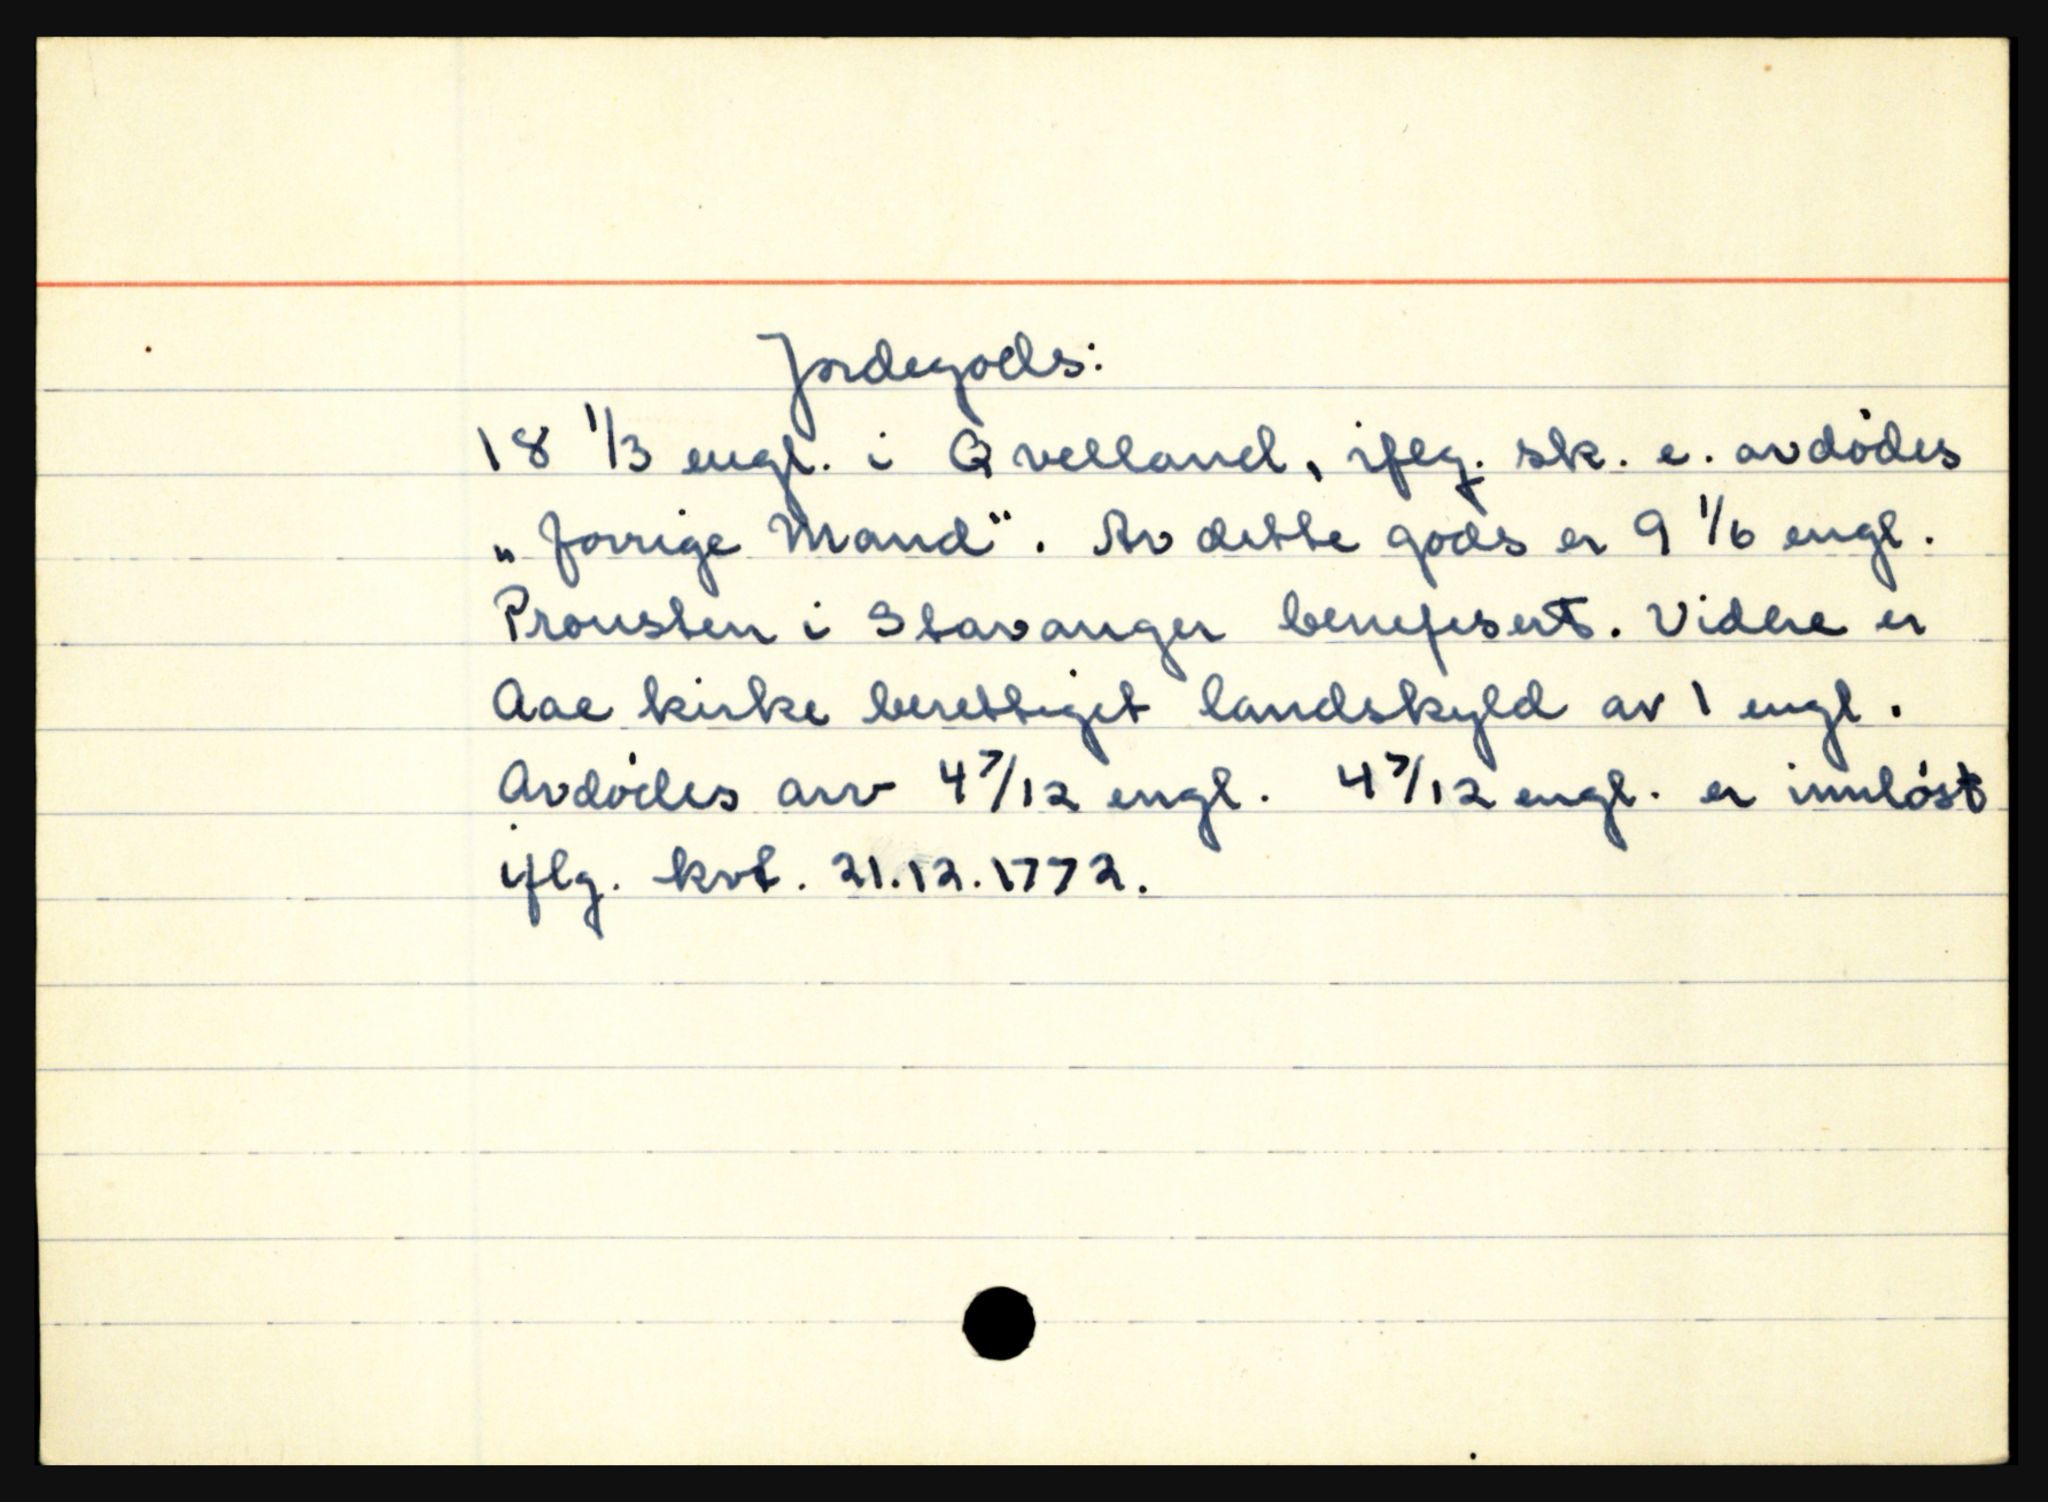 Jordegods:
18 1/3 engl. i Qvelland, iflg. sk. e. avdødes
„forrige Mand". Av dette gods er 9 1/6 engl.
Prousten i Stavanger benefisert. Videre er
Aae kirke berettiget landskyld av 1 engl.
Avdødes arv 4 7/12 engl. 4 7/12 engl. er innløst
iflg. kvt. 21.12.1772.